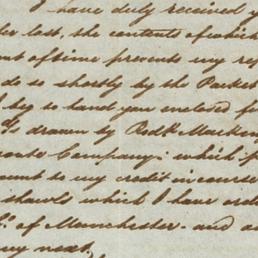 I have duly received y
ber last, the contents of which
nt of time prevents my re
do so shortly by the Packet
I beg to hand you enclosed fo
ds drawn by Rodk Macken
onto Company: which p
ount to my credit in course
shawls which I have ord
of Manchester - and a
my next,